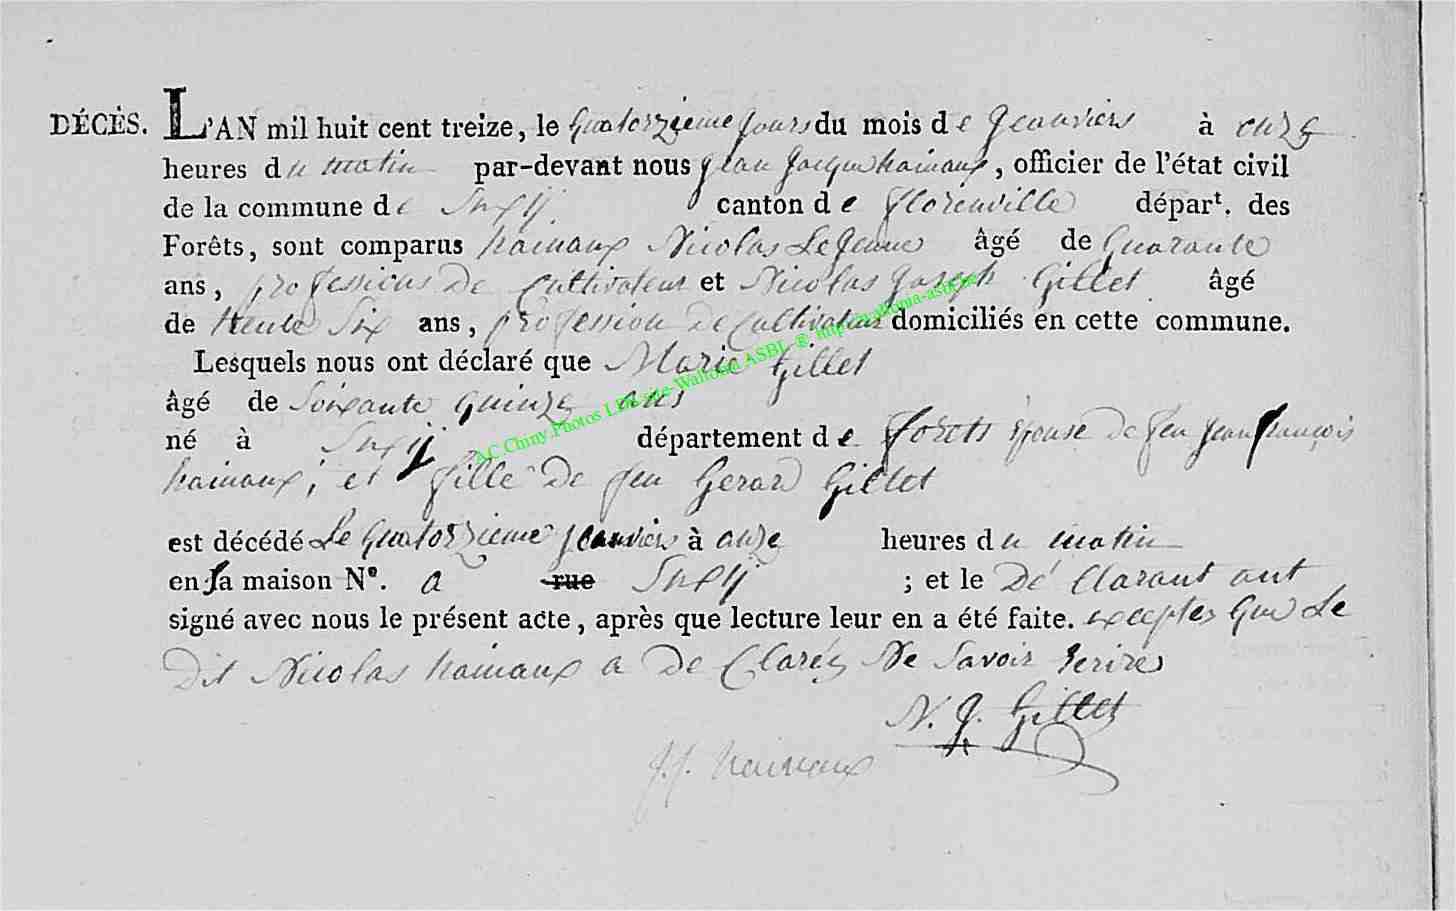 DÉCÈS. L'AN mil huit cent treize, le quatorzieme jours du mois de Jeanviers à onze
heures du matin par-devant nous Jean Jacque hainaux, officier de l'état civil
de la commune de Suxÿ canton de florenville départ. des
Forêts, sont comparus hainaux Nicolas Le Jeune âgé de quarante
ans, professions de Cultivateur et Nicolas Joseph Gillet âgé
de trente Six ans, profession de Cultivateur domiciliés en cette commune.
Lesquels nous ont déclaré que Marie Gillet
âgé de Soixante quinze ans
né à Suxÿ département de forets épouse de feu jean françois
hainaux, et fille de feu Gerard Gillet
est décédé Le quatorzieme jeanviers à onze heures du matin
en sa maison Nº. a rue Suxÿ ; et le Dé Clarant ont
signé avec nous le présent acte, après que lecture leur en a été faite. exceptez que Le
Dit Nicolas hainaux a De Claréz Ne Savoir Ecrires
N. J. Gillet
J. J. hainaux
AC Chiny. Photos LDM site-Wallonia ASBL @ http:wallonia-asbl.be